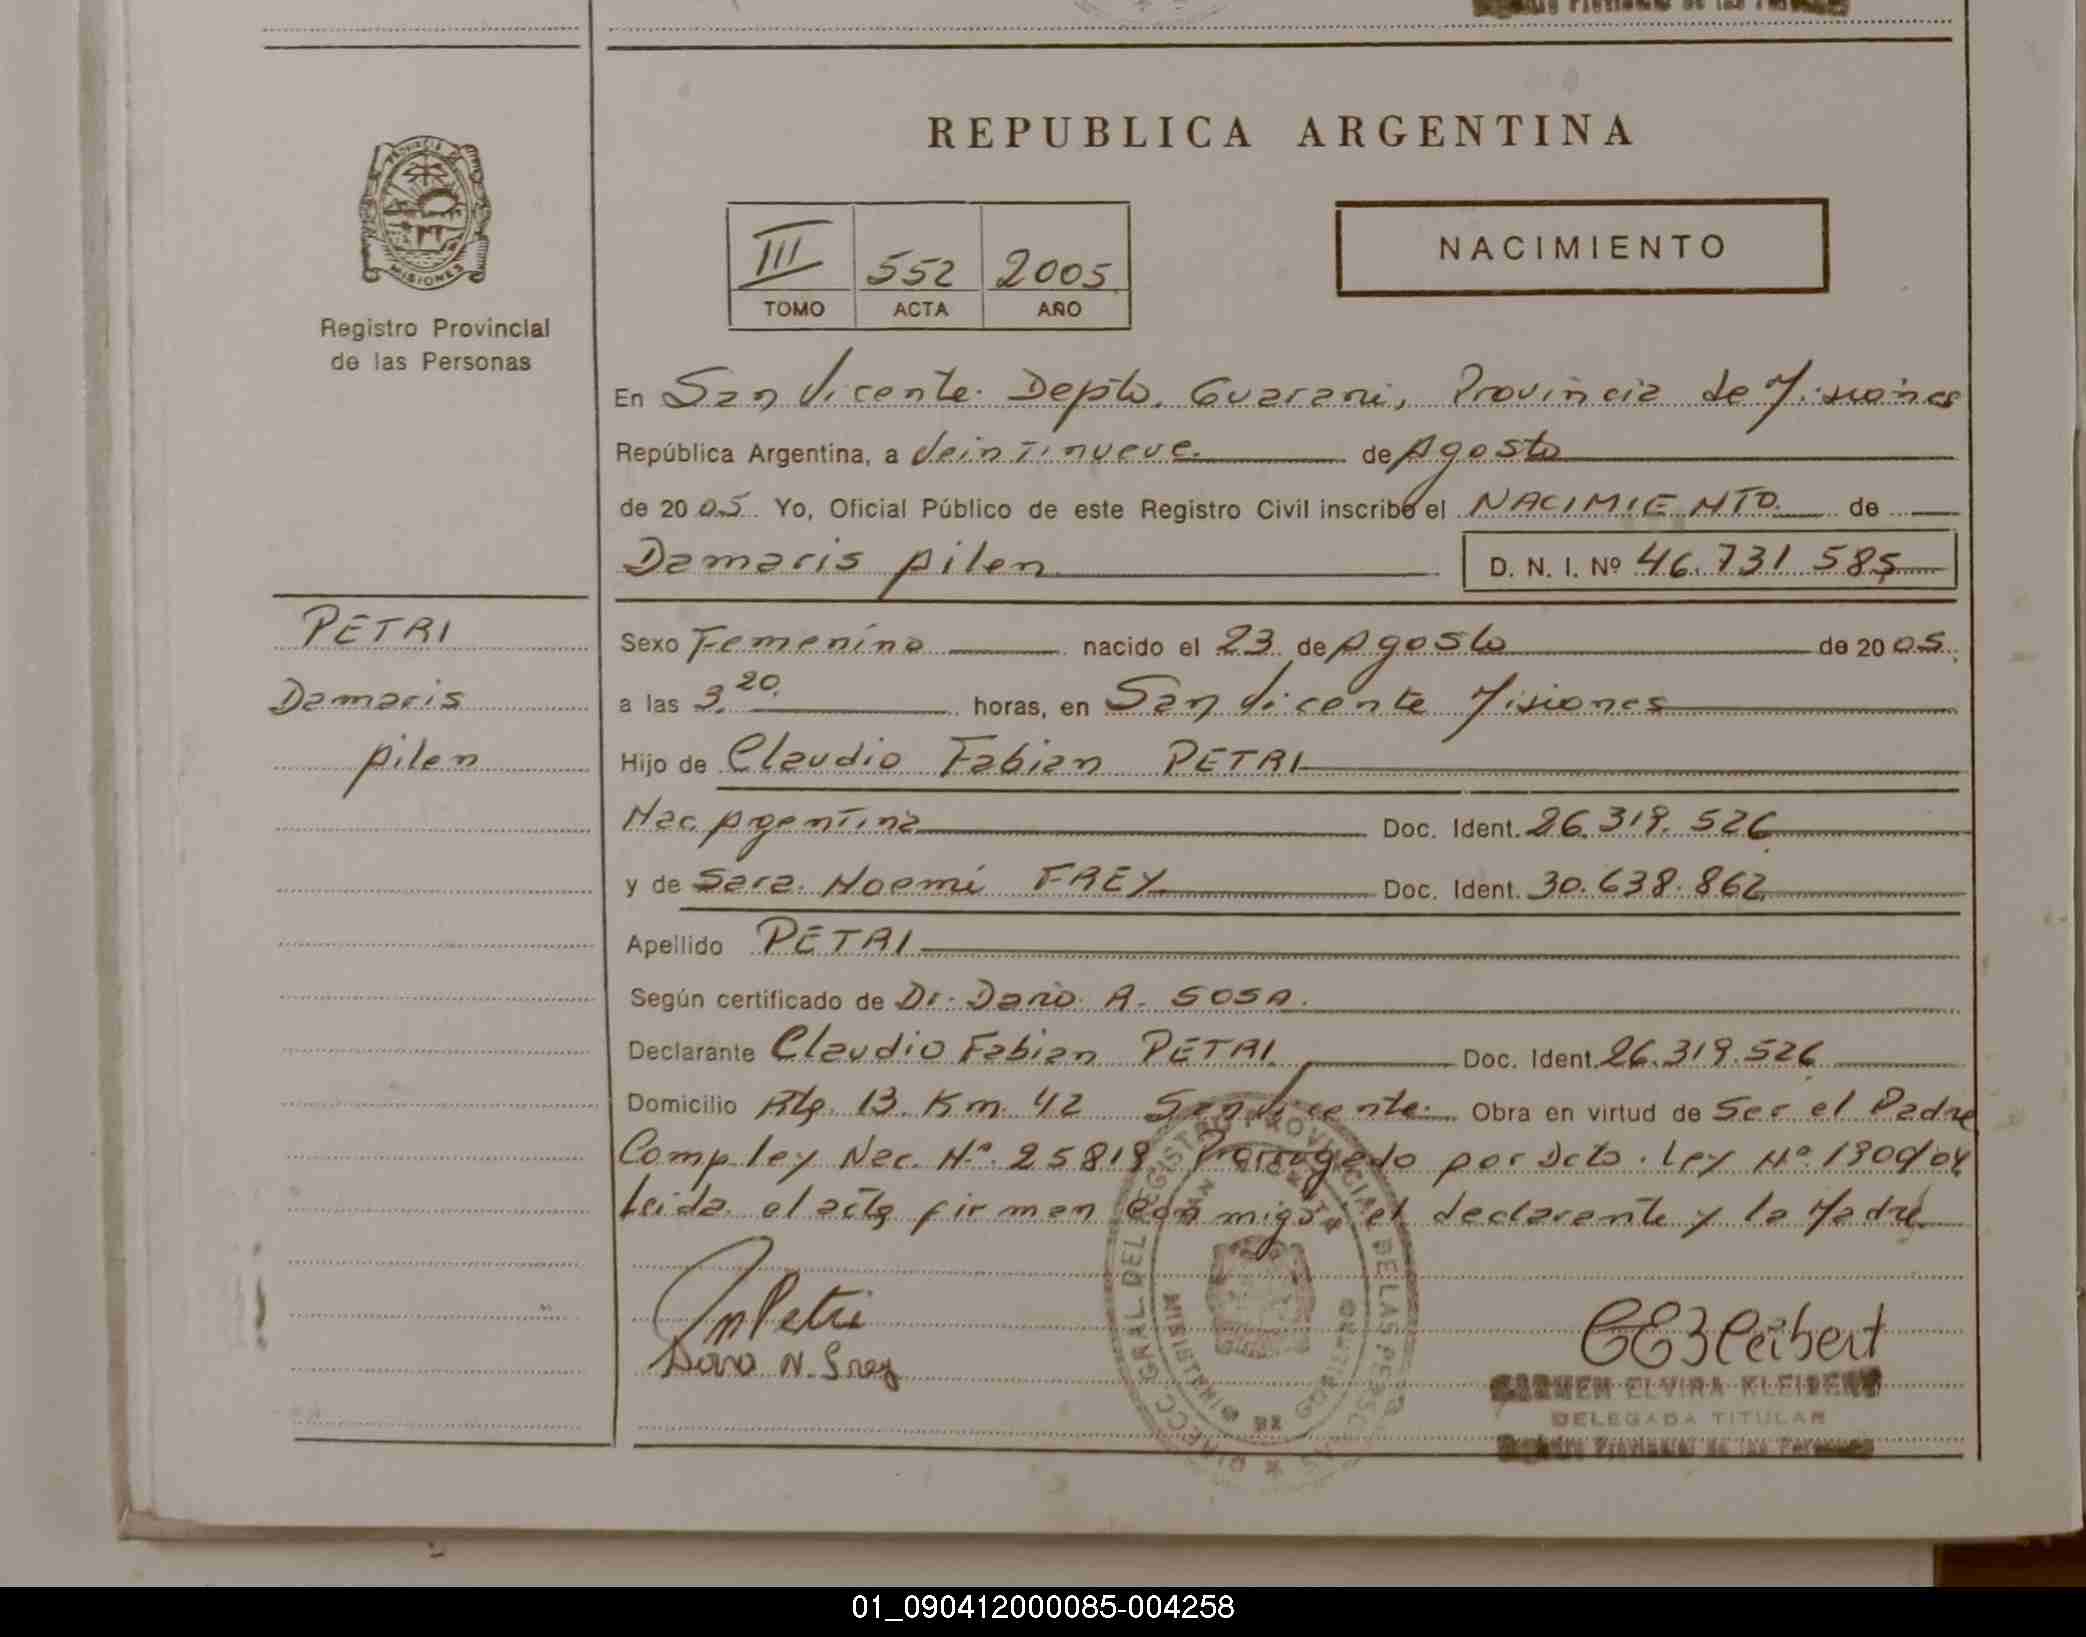 REPUBLICA ARGENTINA
PROVINCIA DE
MISIONES
Registro Provincial
de las Personas
NACIMIENTO
III 552 2005
TOMO ACTA AÑO
En San Vicente. Depto. Guarani, Provincia de Misiones
República Argentina, a Veintinueve de Agosto
de 2005 Yo, Oficial Público de este Registro Civil inscribo el NACIMIENTO de
Damaris Pilen D. N. I. Nº 46.731.585
PETRI
Damaris
Pilen
Sexo Femenino nacido el 23 de Agosto de 2005
a las 3.20 horas, en San Vicente Misiones
Hijo de Claudio Fabian PETRI
Nac. Argentina Doc. Ident. 26.319.526
y de Sara Noemi FREY Doc. Ident. 30.638.862
Apellido PETRI
Según certificado de Dr. Dario A. SOSA.
Declarante Claudio Fabian PETRI Doc. Ident. 26.319.526
Domicilio Rta. 13 Km. 42 San Vicente. Obra en virtud de Ser el Padre
Comp. ley Nac. Nº 25819 Prorrogado por Dcto. Ley Nº 1309/04
Leida el acta firman conmigo el declarante y la Madre
Petri
Sara N. Frey
CEKleibert
CARMEN ELVIRA KLEIBERT
DELEGADA TITULAR
Registro Provincial de las Personas
DIRECC. GRAL. DEL REGISTRO PROVINCIAL DE LAS PERSONAS
SAN VICENTE
MINISTERIO DE GOBIERNO
01_090412000085-004258